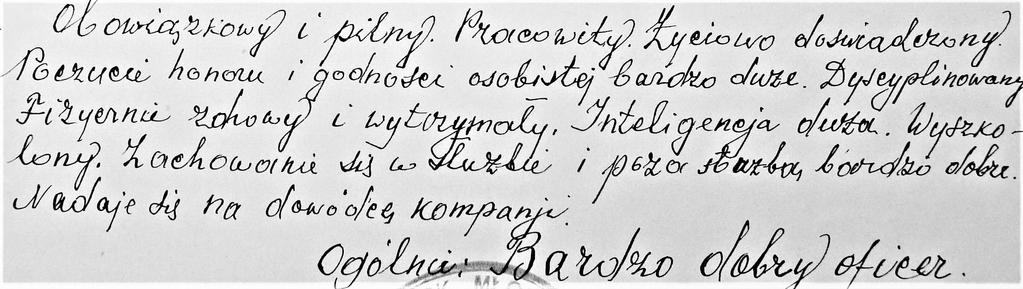 Obowiązkowy i pilny. Pracowity. Życiowo doświadczony.
Poczucie honoru i godności osobistej bardzo duże. Dyscyplinowany
Fizycznie zdrowy i wytrzymały. Inteligencja duża. Wyszko-
lony. Zachowanie się w służbie i poza służbą bardzo dobre.
Nadaje się na dowódcę kompanji.
Ogólnie: Bardzo dobry oficer.
MŁO